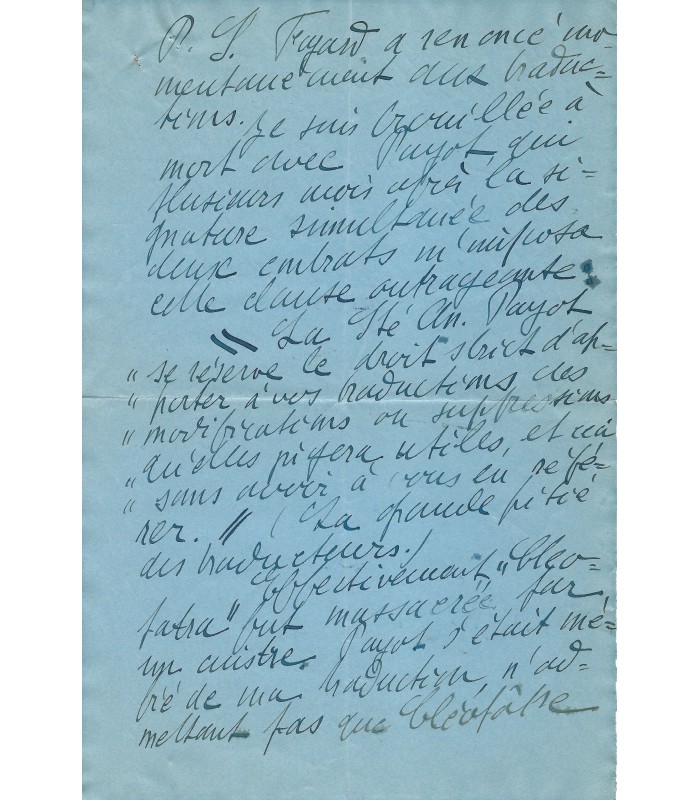 P. S. Fayard a renoncé mo-
mentanément aux traduc-
tions. Je suis brouillée à
mort avec Payot, qui
plusieurs mois après la si-
gnature simultanée des
deux contrats m'imposa
cette clause outrageante:
" La Sté An. Payot
" se réserve le droit strict d'ap-
" porter à vos traductions, des
" modifications ou suppressions
" qu'elle jugera utiles, et
" sans avoir à vous en réfé-
rer. " (La grande pitié
des traducteurs!)
Effectivement, "Cléo-
patra" fut massacrée par
un cuistre. Payot s'était mé-
fié de ma traduction, n'ad-
mettant pas que Cléopâtre